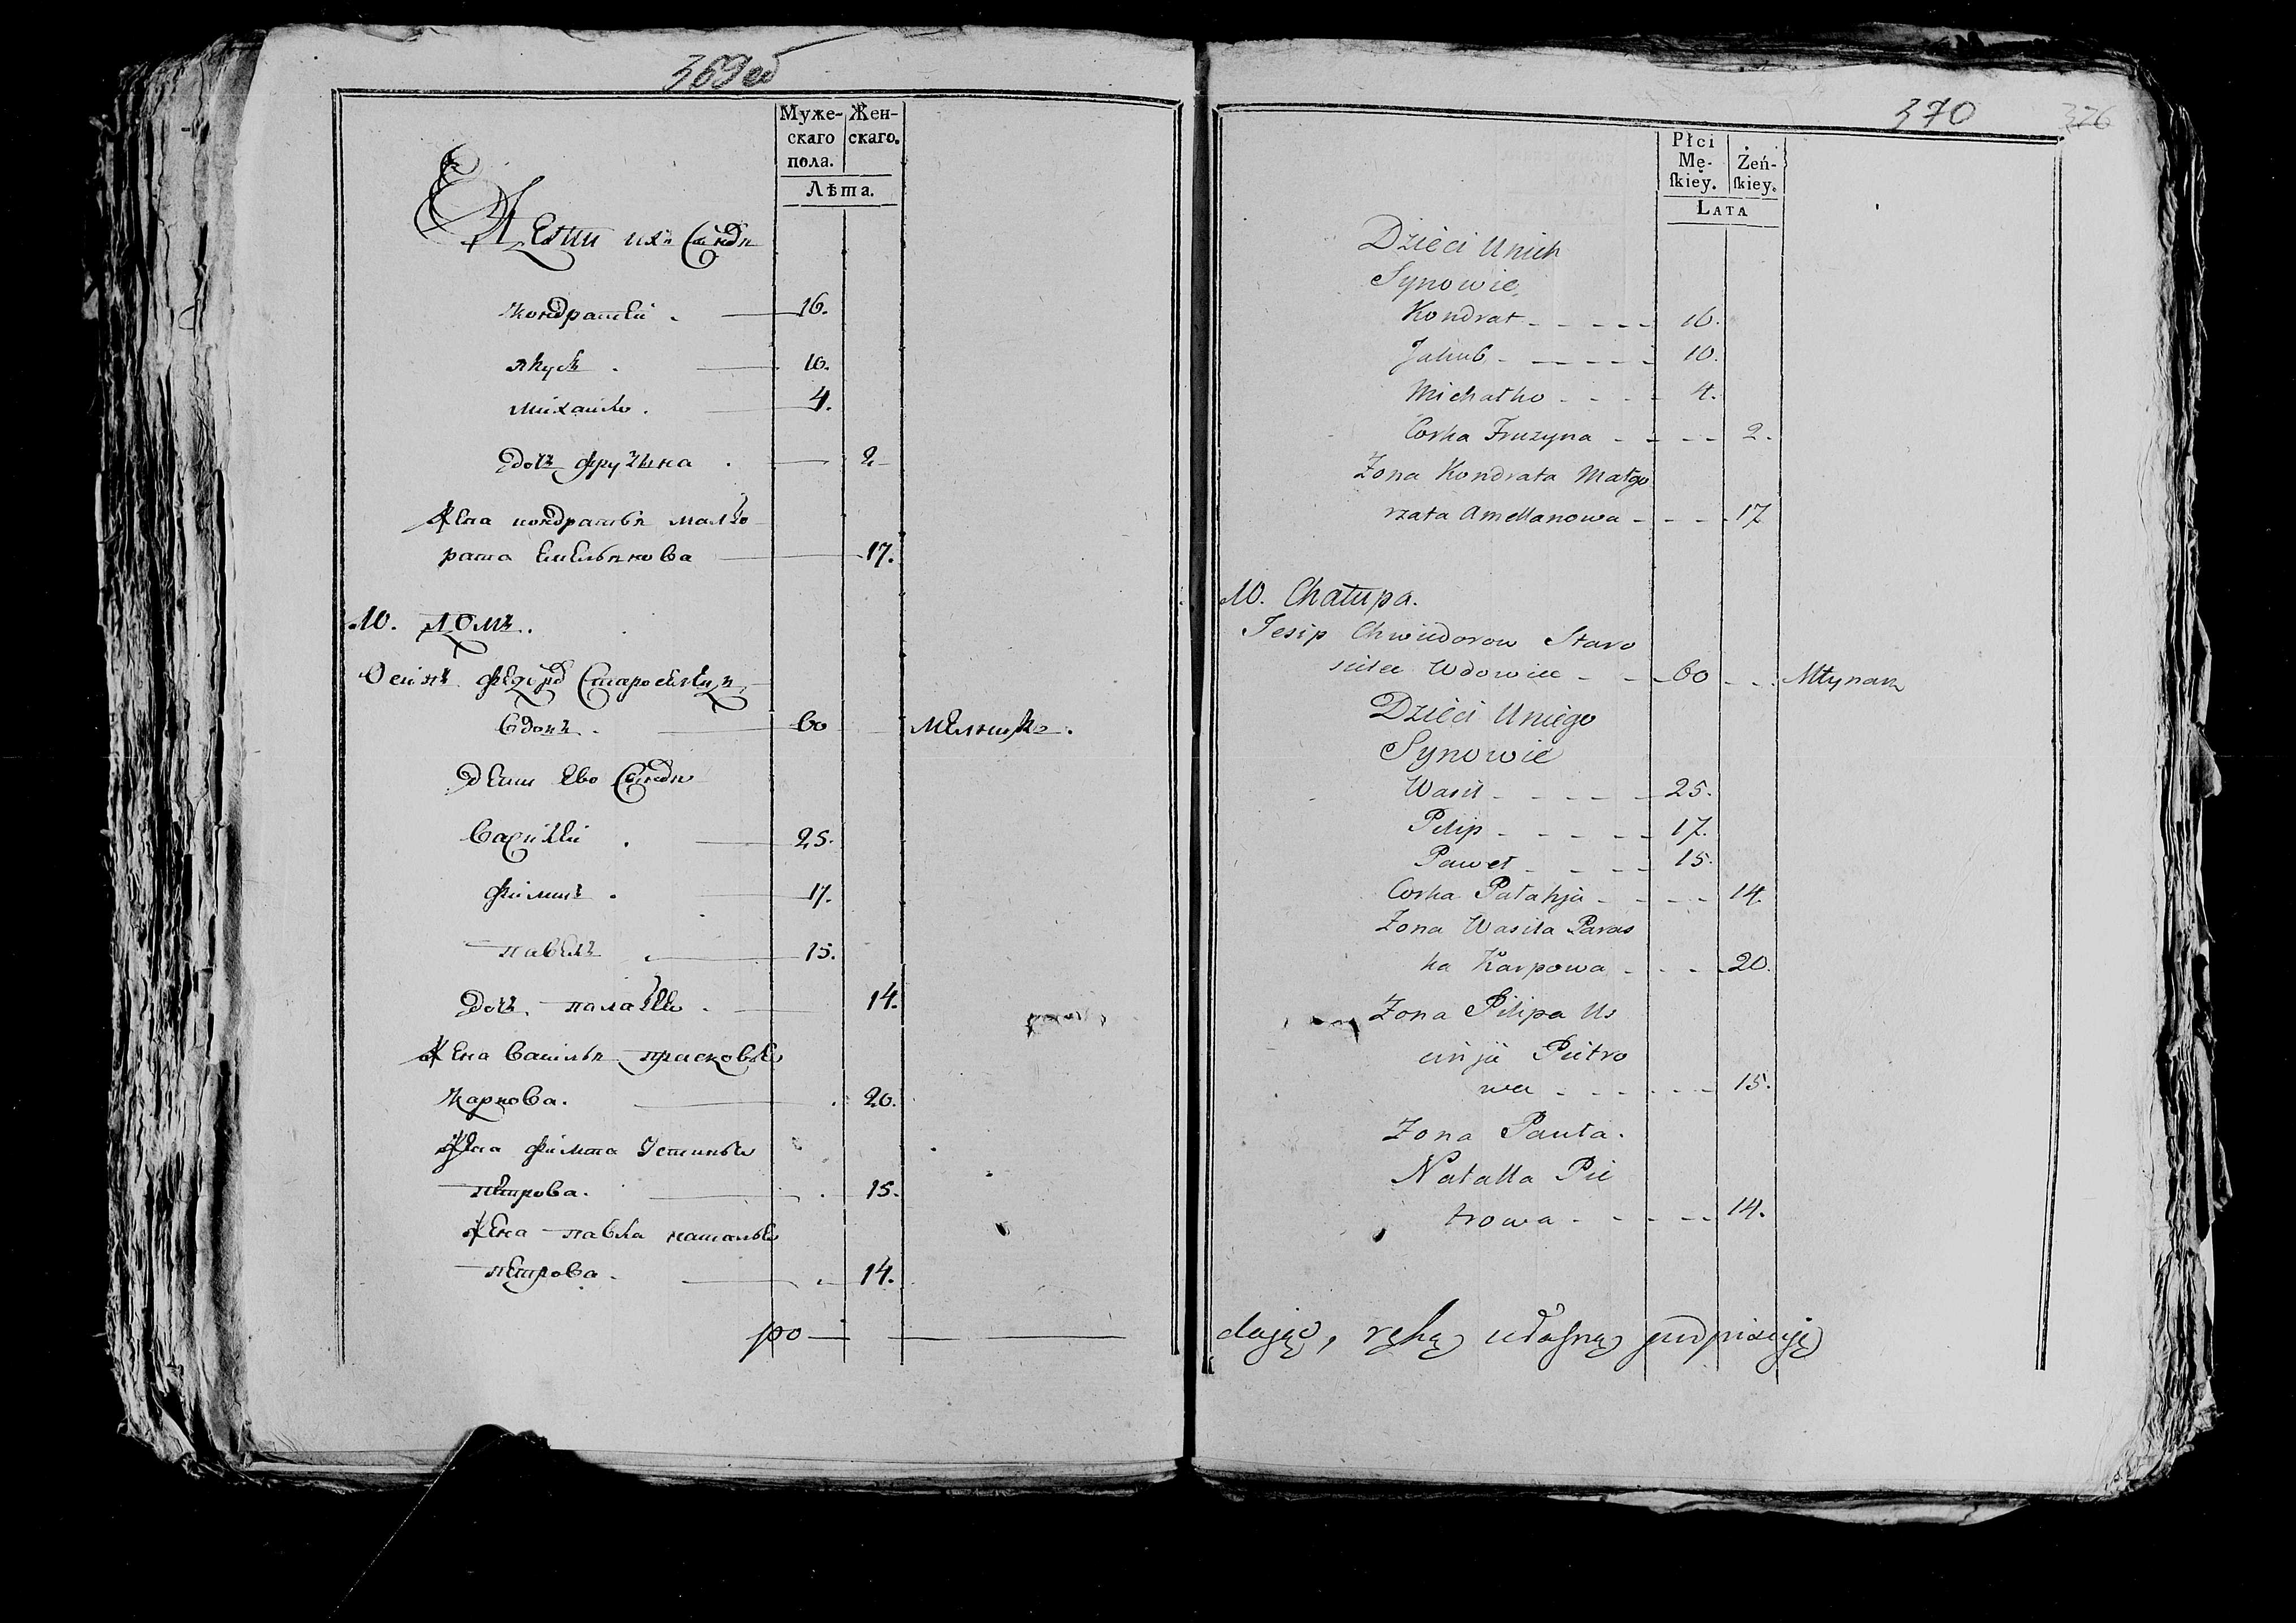 369 об
Муже- Жен-
скаго скаго.
пола.
Лѣта.
Дети ихъ
Кондратей . 16.
Якубъ . 10.
Михайло . 4.
дочь Фрузына . 2
Жена Кондратья Малго
рата Емельянова 17.
10. Домъ.
Осипъ Федоров Староселецъ
вдовъ . 60 Мельникъ.
Дети Ево
Василей . 25.
Филипъ . 17.
Павелъ 15.
дочь Палагея . 14.
Жена Василья Прасковья
Карпова. 20.
Жена Филипа Устинья
Петрова. 15.
Жена Павла Наталья
Петрова. 14.
ро
370 326
Płci
Mę- Żeń-
ſkiey. ſkiey.
LATA
Dzieci Unich
Synowie
Kondrat 16.
Jakub 10.
Michałko 4.
Corka Fruzyna 2.
Zona Kondrata Małgo
rzata Amellanowa 17
10. Chałupa.
Jesip Chwiedorow Staro
sielec Wdowiec 60 Młynarz
Dzieci Uniego
Synowie
Wasil 25.
Pilip 17.
Paweł 15.
Corka Pałahja 14.
Zona Wasila Paras
ka Karpowa 20.
Zona Pilipa Us
cinja Pietro
wa 15.
Zona Pawła.
Natalla Pie
trowa 14.
dając, ręką własną podpisuję